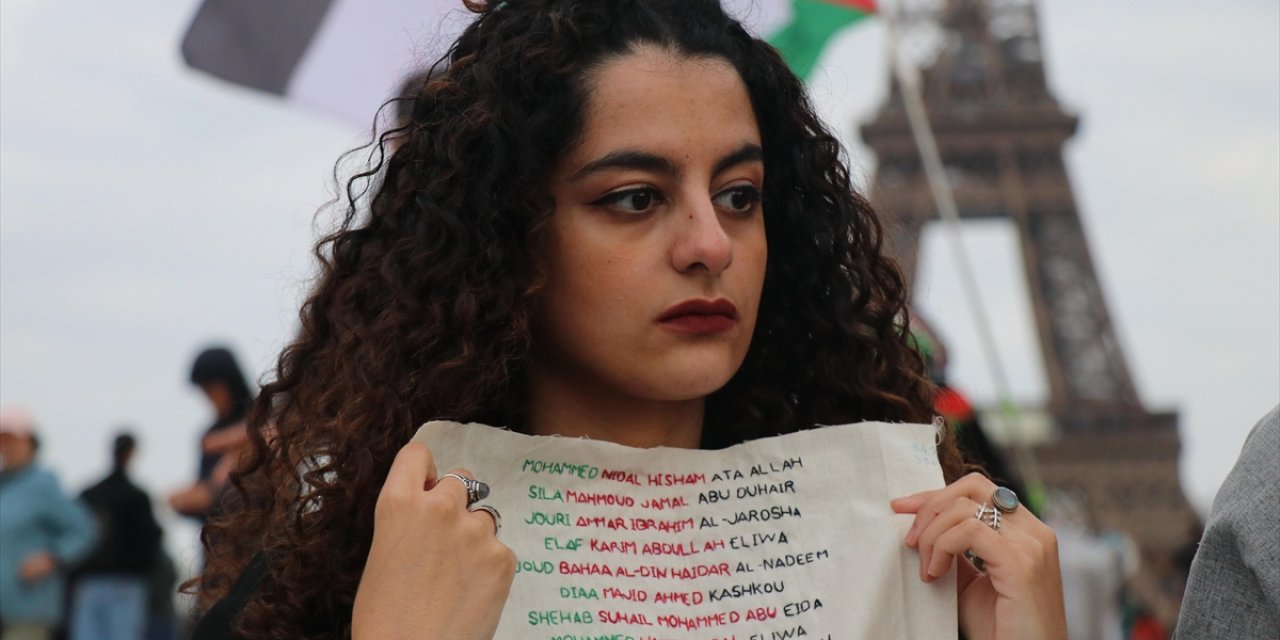 MOHAMMED NIDAL HISHAM ATA ALLAH
SILA MAHMOUD JAMAL ABU DUHAIR
JOURI AMMAR IBRAHIM AL-JAROSHA
ELAF KARIM ABDULLAH ELIWA
JOUD BAHAA AL-DIN HAIDAR AL-NADEEM
DIAA MAJID AHMED KASHKOU
SHEHAB SUHAIL MOHAMMED ABU EIDA
MOHAMMED ELIWA